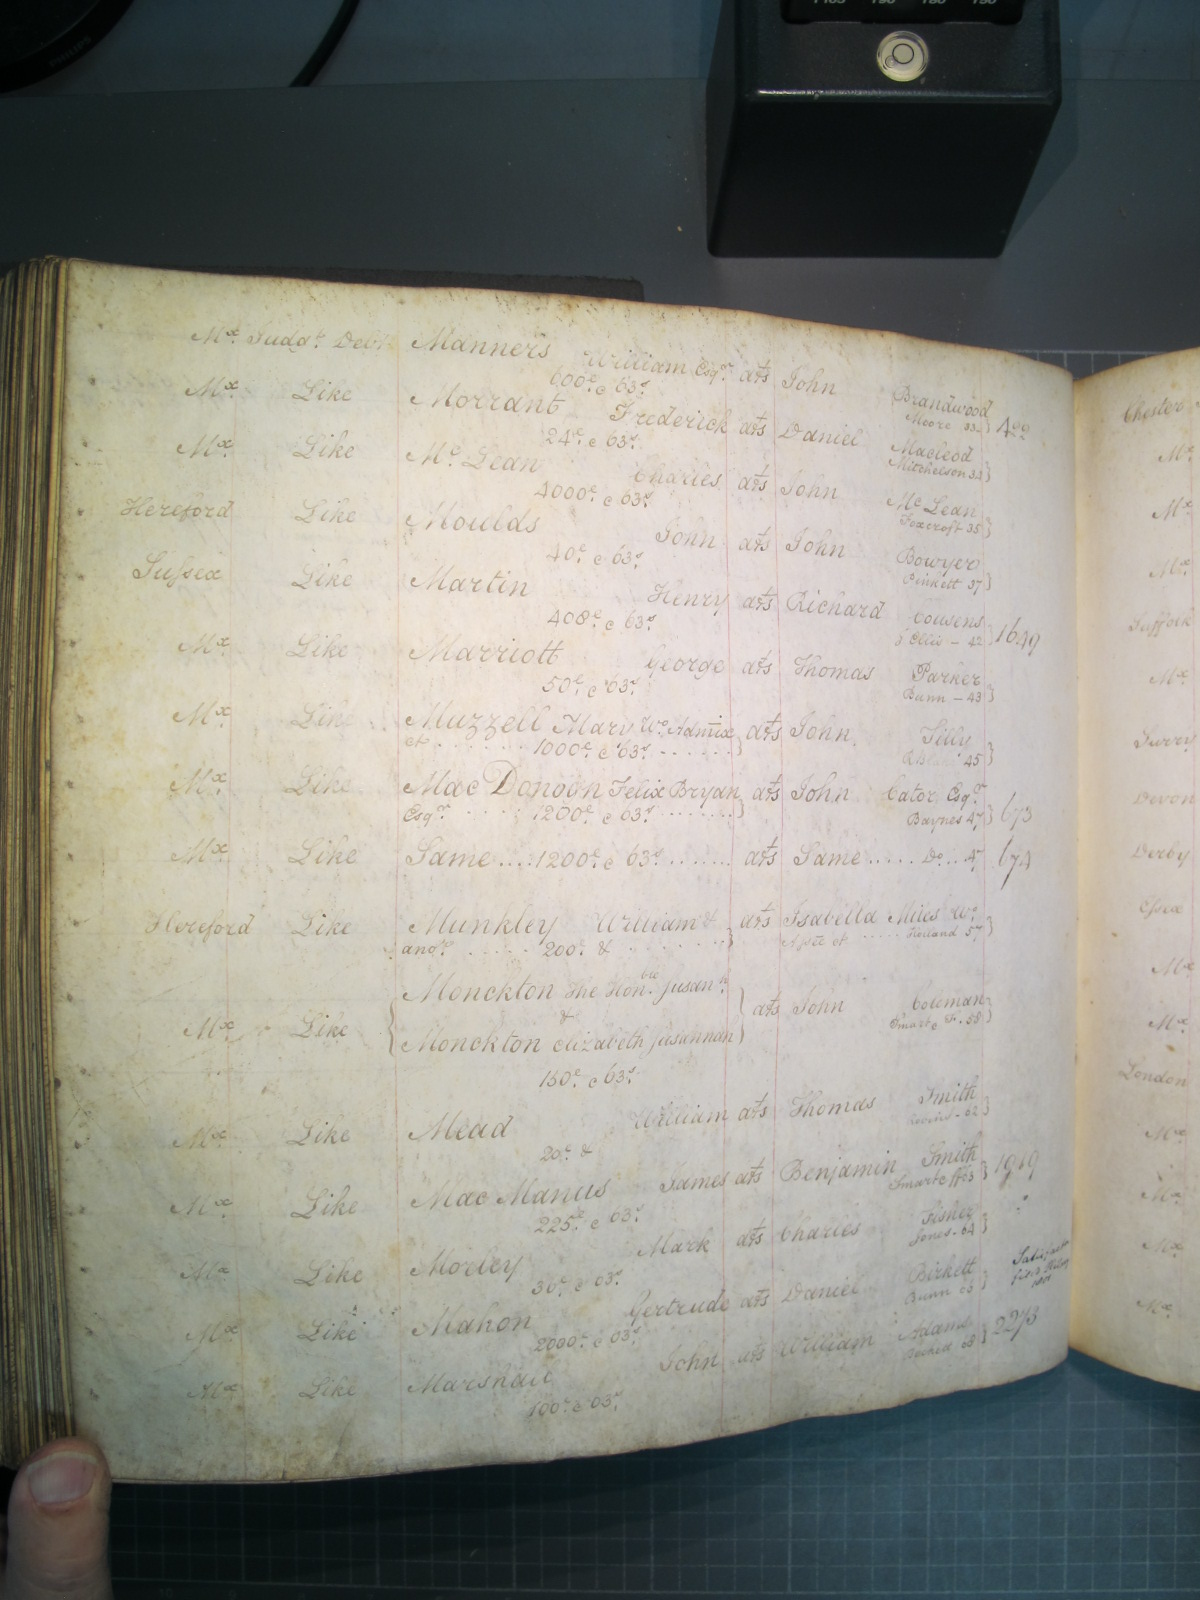 Mx. Judgt. Debt Manners William Esqr. ats John Brandwood
600£ c 63s. Moore 33 400
Mx. Like Morrant Frederick ats Daniel Macleod
24£ c 63s. Mitchelson 34
Mx. Like Mc. Lean Charles ats John Mc Lean
4000£ c 63s. Foxcroft 35
Hereford Like Moulds John ats John Bowyer
40£ c 63s. Pinkett 37
Sussex Like Martin Henry ats Richard Cousens
408£ c 63s. Ellis - 42
Mx. Like Marriott George ats Thomas Parker
50£ c 63s. Bunn - 43
Mx. Like Muzzell Mary Wo. Admix ats John Tilly
1000£ c 63s. 45
Mx. Like Mac Donogn Felix Bryan ats John Cator Esqr.
Esqr. 1200£ c 63s. Baynes 47 673
Mx. Like Same .... 1200£ c 63s. ....... ats Same ..... Do. .. 47 674
Hereford Like Munkley William & ats Isabella Miles Wo.
anor. 200£ & Holland 57
Monckton The Honble. Susanh.
Mx. Like & ats John Coleman
Monckton Elizabeth Susannah Smart c F. 58
150£ c 63s.
Mx. Like Mead William ats Thomas Smith
20£ & 62
Mx. Like Mac Manus James ats Benjamin Smith
225£ c 63s. Smart 1919
Mx. Like Morley Mark ats Charles Fisher
30£ c 63s. Jones - 64
Mx. Like Mahon Gertrude ats Daniel Birkett
2000£ c 63s. Bunn 66
Mx. Like Marshall John ats William Adams
100£ c 63s. 68 2273
Chester
Mx.
Mx.
Mx.
Suffolk
Mx.
Surry
Devon
Derby
Essex
Mx.
Mx.
London
Mx.
Mx.
Mx.
Mx.
PHILIPS